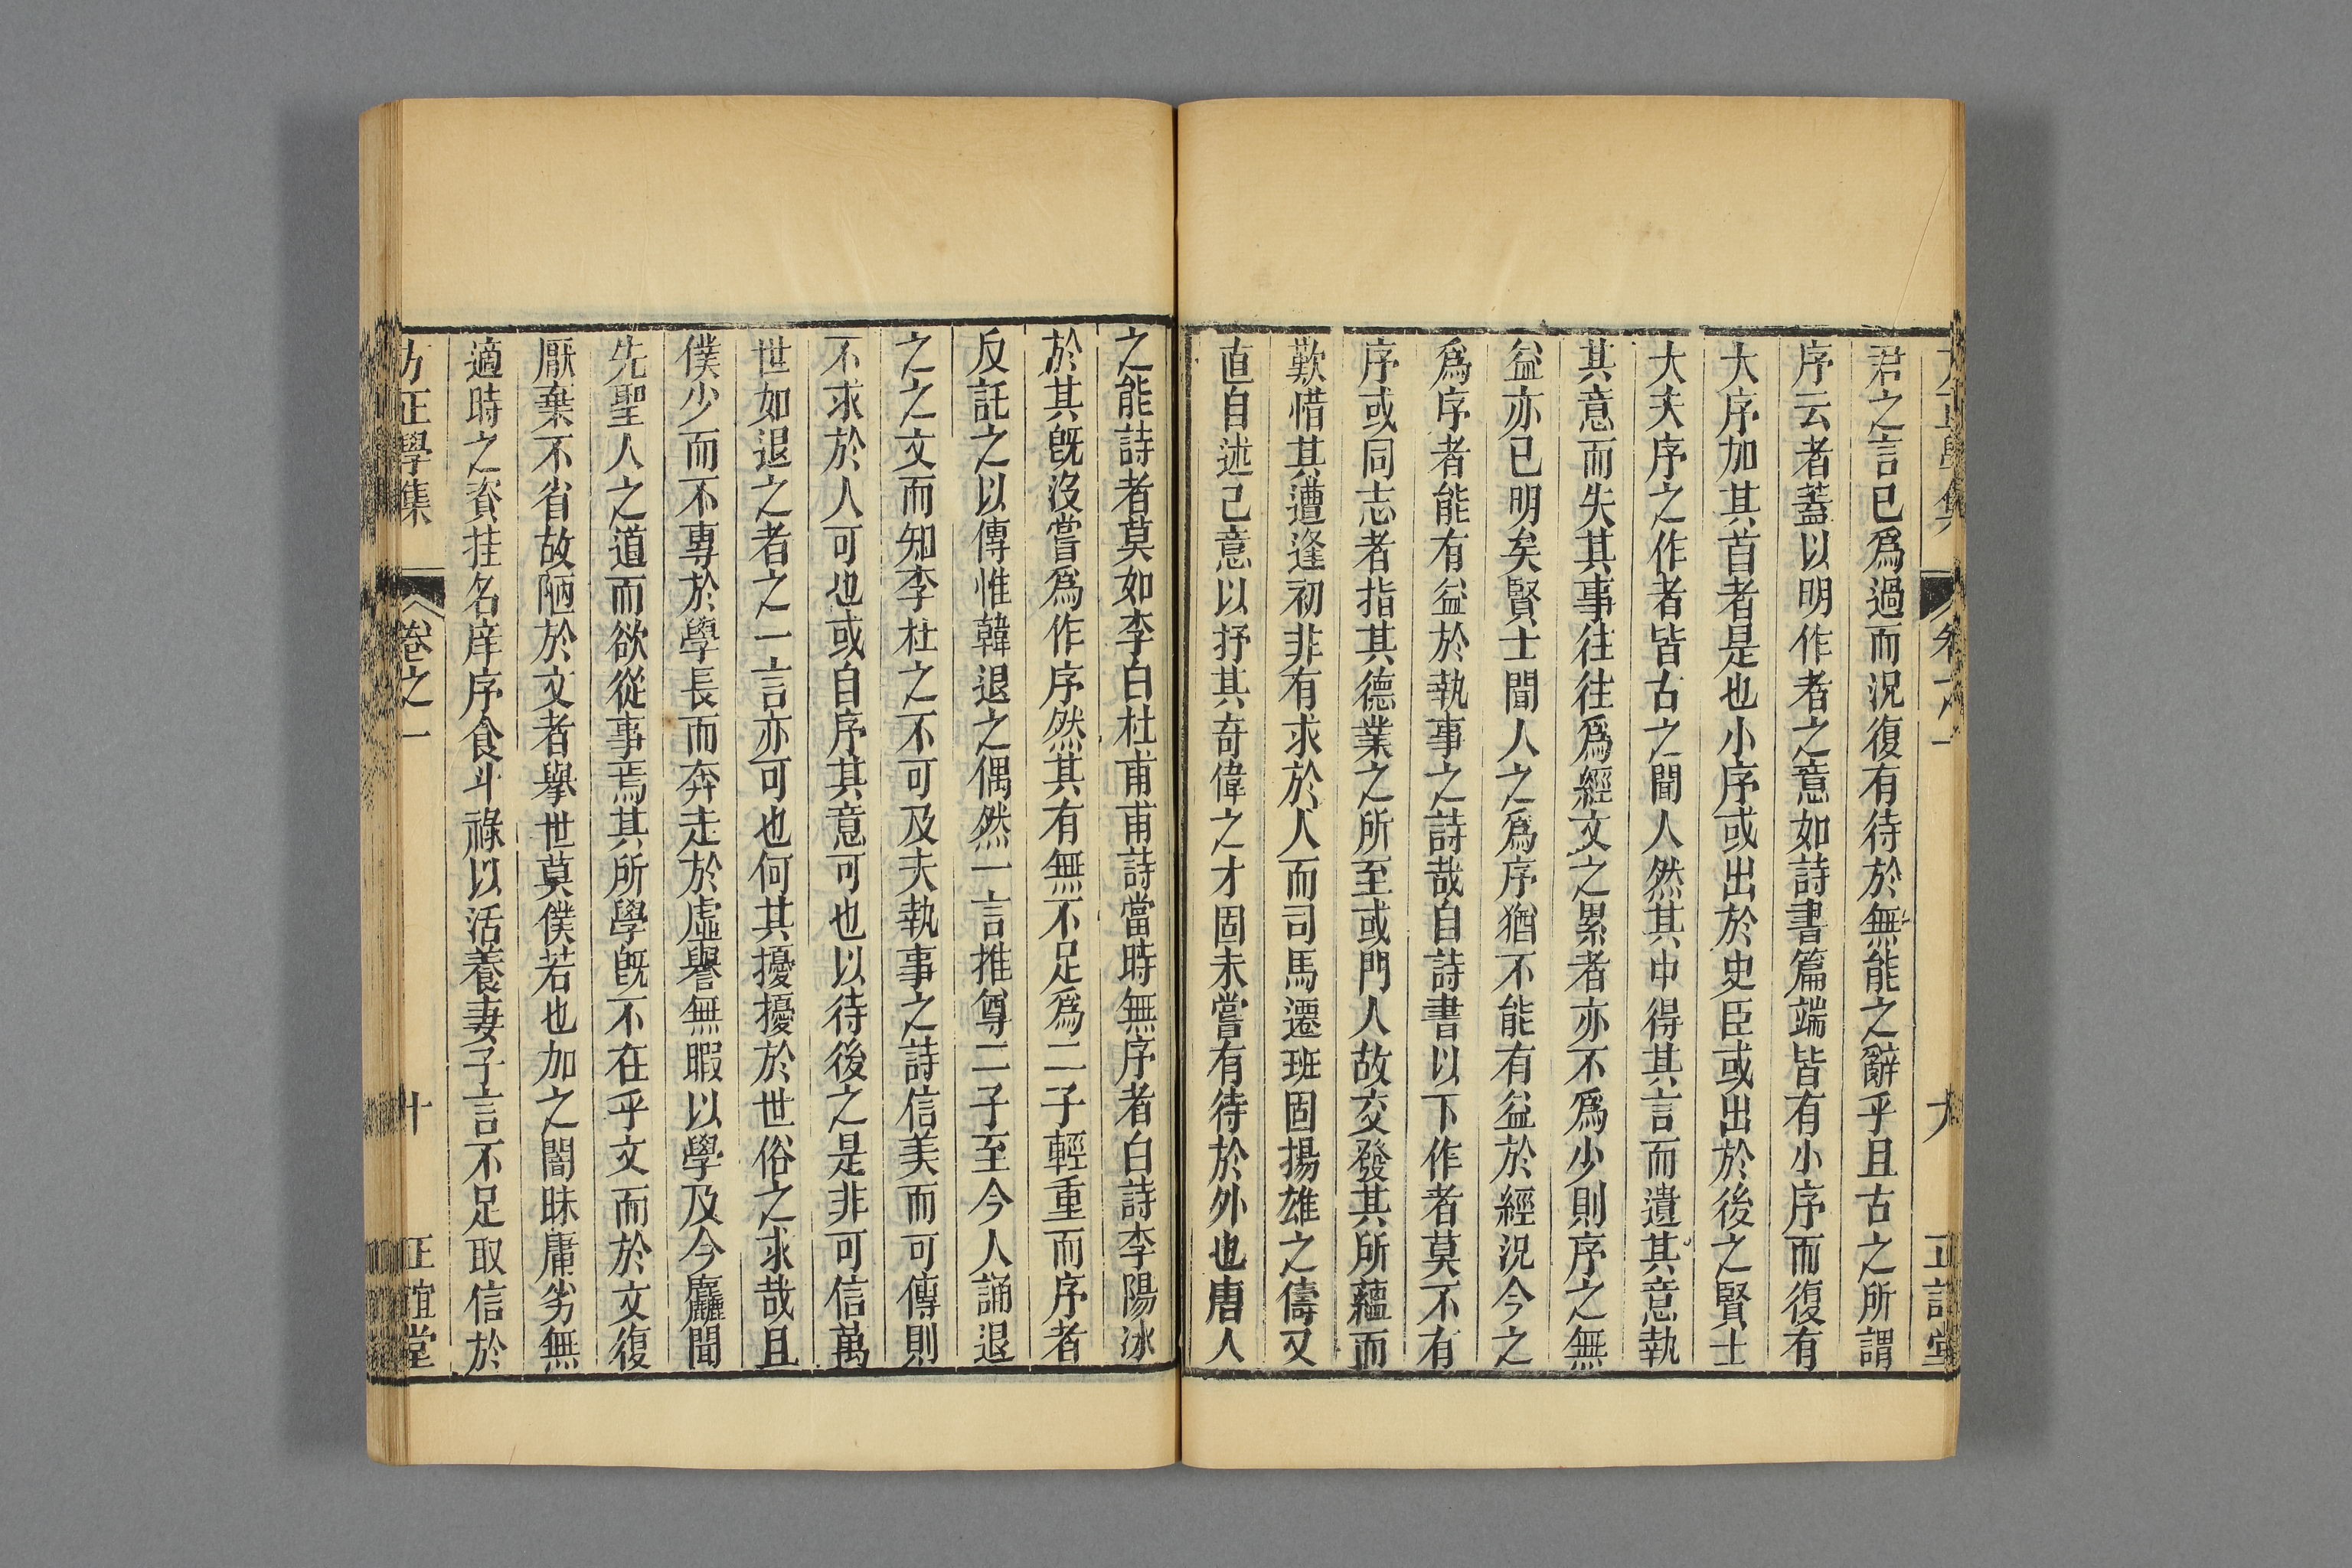 君之言已爲過而況復有待於無能之辭乎且古之所謂
序云者蓋以明作者之意如詩書篇端皆有小序而復有
大序加其首者是也小序或出於史臣或出於後之賢士
大夫序之作者皆古之聞人然其中得其言而遺其意執
其意而失其事往往爲經文之累者亦不爲少則序之無
益亦已明矣賢士聞人之爲序猶不能有益於經況今之
爲序者能有益於執事之詩哉自詩書以下作者莫不有
序或同志者指其德業之所至或門人故交發其所蘊而
歎惜其遭逢初非有求於人而司馬遷班固揚雄之儔又
直自述己意以抒其奇偉之才固未嘗有待於外也唐人
之能詩者莫如李白杜甫甫詩當時無序者白詩李陽冰
於其旣沒嘗爲作序然其有無不足爲二子輕重而序者
反託之以傳惟韓退之偶然一言推尊二子至今人誦退
之之文而知李杜之不可及夫執事之詩信美而可傳則
不求於人可也或自序其意可也以待後之是非可信萬
世如退之者之一言亦可也何其擾擾於世俗之求哉且
僕少而不專於學長而奔走於虛譽無暇以學及今麤聞
先聖人之道而欲從事焉其所學旣不在乎文而於文復
厭棄不省故陋於文者舉世莫僕若也加之闇昧庸劣無
適時之資挂名庠序食斗祿以活養妻子言不足取信於
方正學集 卷之一 十 正誼堂